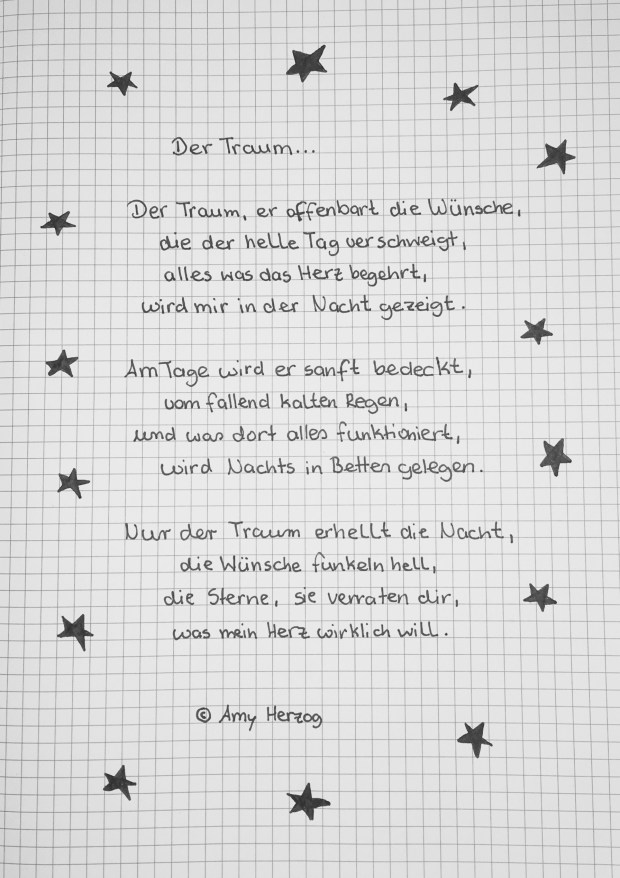 Der Traum...
Der Traum, er offenbart die Wünsche,
die der helle Tag verschweigt,
alles was das Herz begehrt,
wird mir in der Nacht gezeigt.
Am Tage wird er sanft bedeckt,
vom fallend kalten Regen,
und was dort alles funktioniert,
wird Nachts in Betten gelegen.
Nur der Traum erhellt die Nacht,
die Wünsche funkeln hell,
die Sterne, sie verraten dir,
was mein Herz wirklich will.
© Amy Herzog